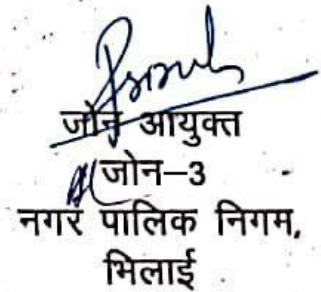 जोन आयुक्त
जोन-3
नगर पालिक निगम,
भिलाई